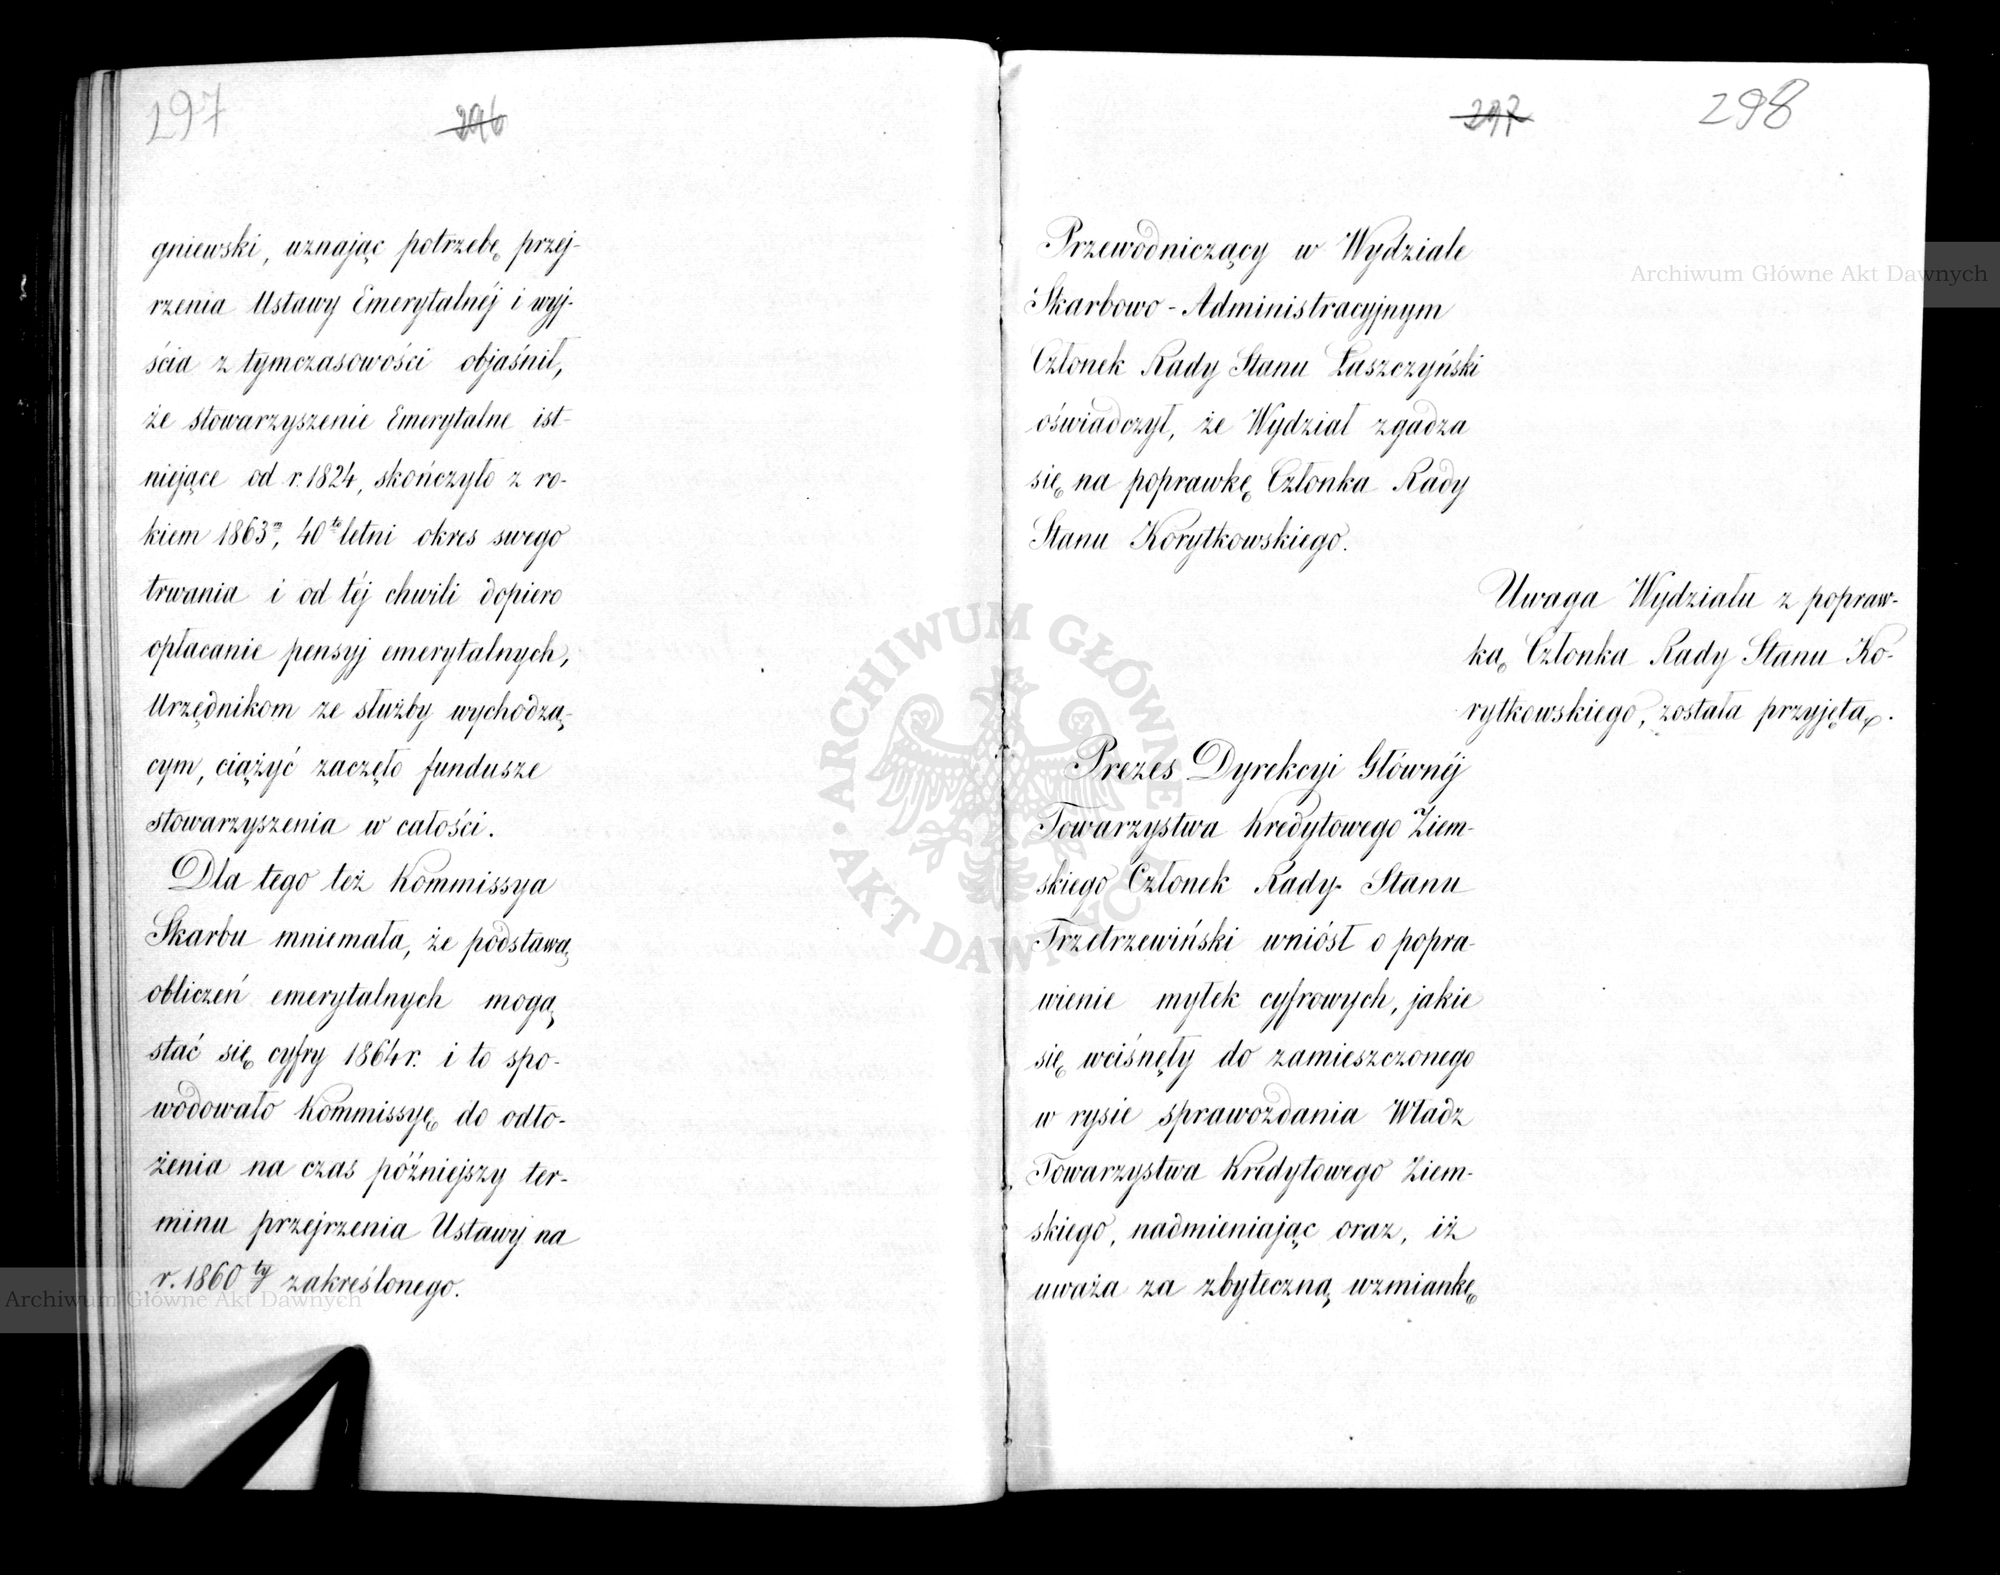 297
296
gniewski, uznając potrzebę przej-
rzenia Ustawy Emerytalnéj i wyj-
ścia z tymczasowości objaśnił,
że stowarzyszenie Emerytalne ist-
niejące od r. 1824, skończyło z ro-
kiem 1863m, 40to letni okres swego
trwania i od téj chwili dopiero
opłacanie pensyj emerytalnych,
Urzędnikom ze służby wychodzą-
cym, ciążyć zaczęło fundusze
stowarzyszenia w całości.
Dla tego też Kommissya
Skarbu mniemała, że podstawą
obliczeń emerytalnych mogą
stać się cyfry 1864 r. i to spo-
wodowało Kommissyę do odło-
żenia na czas późniejszy ter-
minu przejrzenia Ustawy na
r. 1860ty zakreślonego.
297
298
Przewodniczący w Wydziale
Skarbowo-Administracyjnym
Członek Rady Stanu Łaszczyński
oświadczył, że Wydział zgadza
się na poprawkę Członka Rady
Stanu Korytkowskiego.
Uwaga Wydziału z popraw-
ką Członka Rady Stanu Ko-
rytkowskiego, została przyjętą.
Prezes Dyrekcyi Głównéj
Towarzystwa Kredytowego Ziem-
skiego Członek Rady Stanu
Trzetrzewiński wniósł o popra-
wienie myłek cyfrowych, jakie
się wcisnęły do zamieszczonego
w rysie sprawozdania Władz
Towarzystwa Kredytowego Ziem-
skiego, nadmieniając oraz, iż
uważa za zbyteczną wzmiankę
Archiwum Główne Akt Dawnych
ARCHIWUM GŁÓWNE AKT DAWNYCH
Archiwum Główne Akt Dawnych